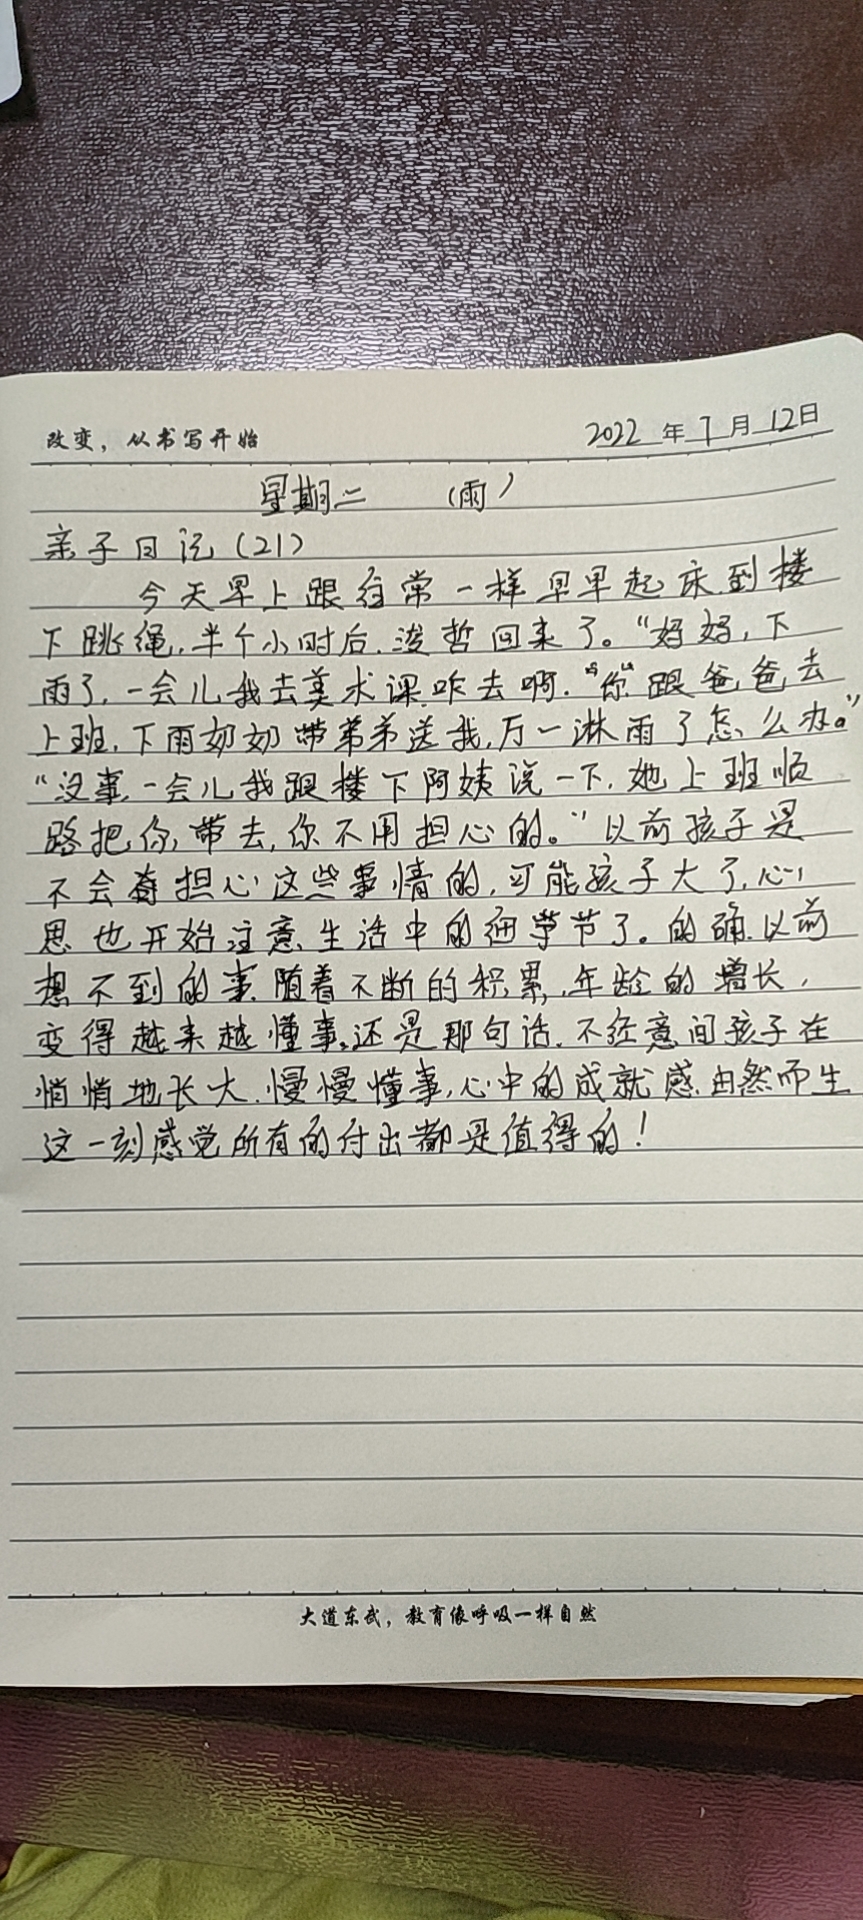 改变，从书写开始
2022 年 7 月 12日
星期二 （雨）
亲子日记（21）
今天早上跟往常一样早早起床到楼
下跳绳，半个小时后，浚哲回来了。“妈妈，下
雨了，一会儿我去美术课咋去啊.“你”跟爸爸去
上班，下雨奶奶带弟弟送我，万一淋雨了怎么办。”
“没事，一会儿我跟楼下阿姨说一下，她上班顺
路把你带去，你不用担心的。”以前孩子是
不会担心这些事情的，可能孩子大了，心
思也开始注意生活中的细节了。的确，以前
想不到的事，随着不断的积累，年龄的增长，
变得越来越懂事。还是那句话，不经意间孩子在
悄悄地长大，慢慢懂事，心中的成就感由然而生
这一刻感觉所有的付出都是值得的！
大道东武，教育像呼吸一样自然